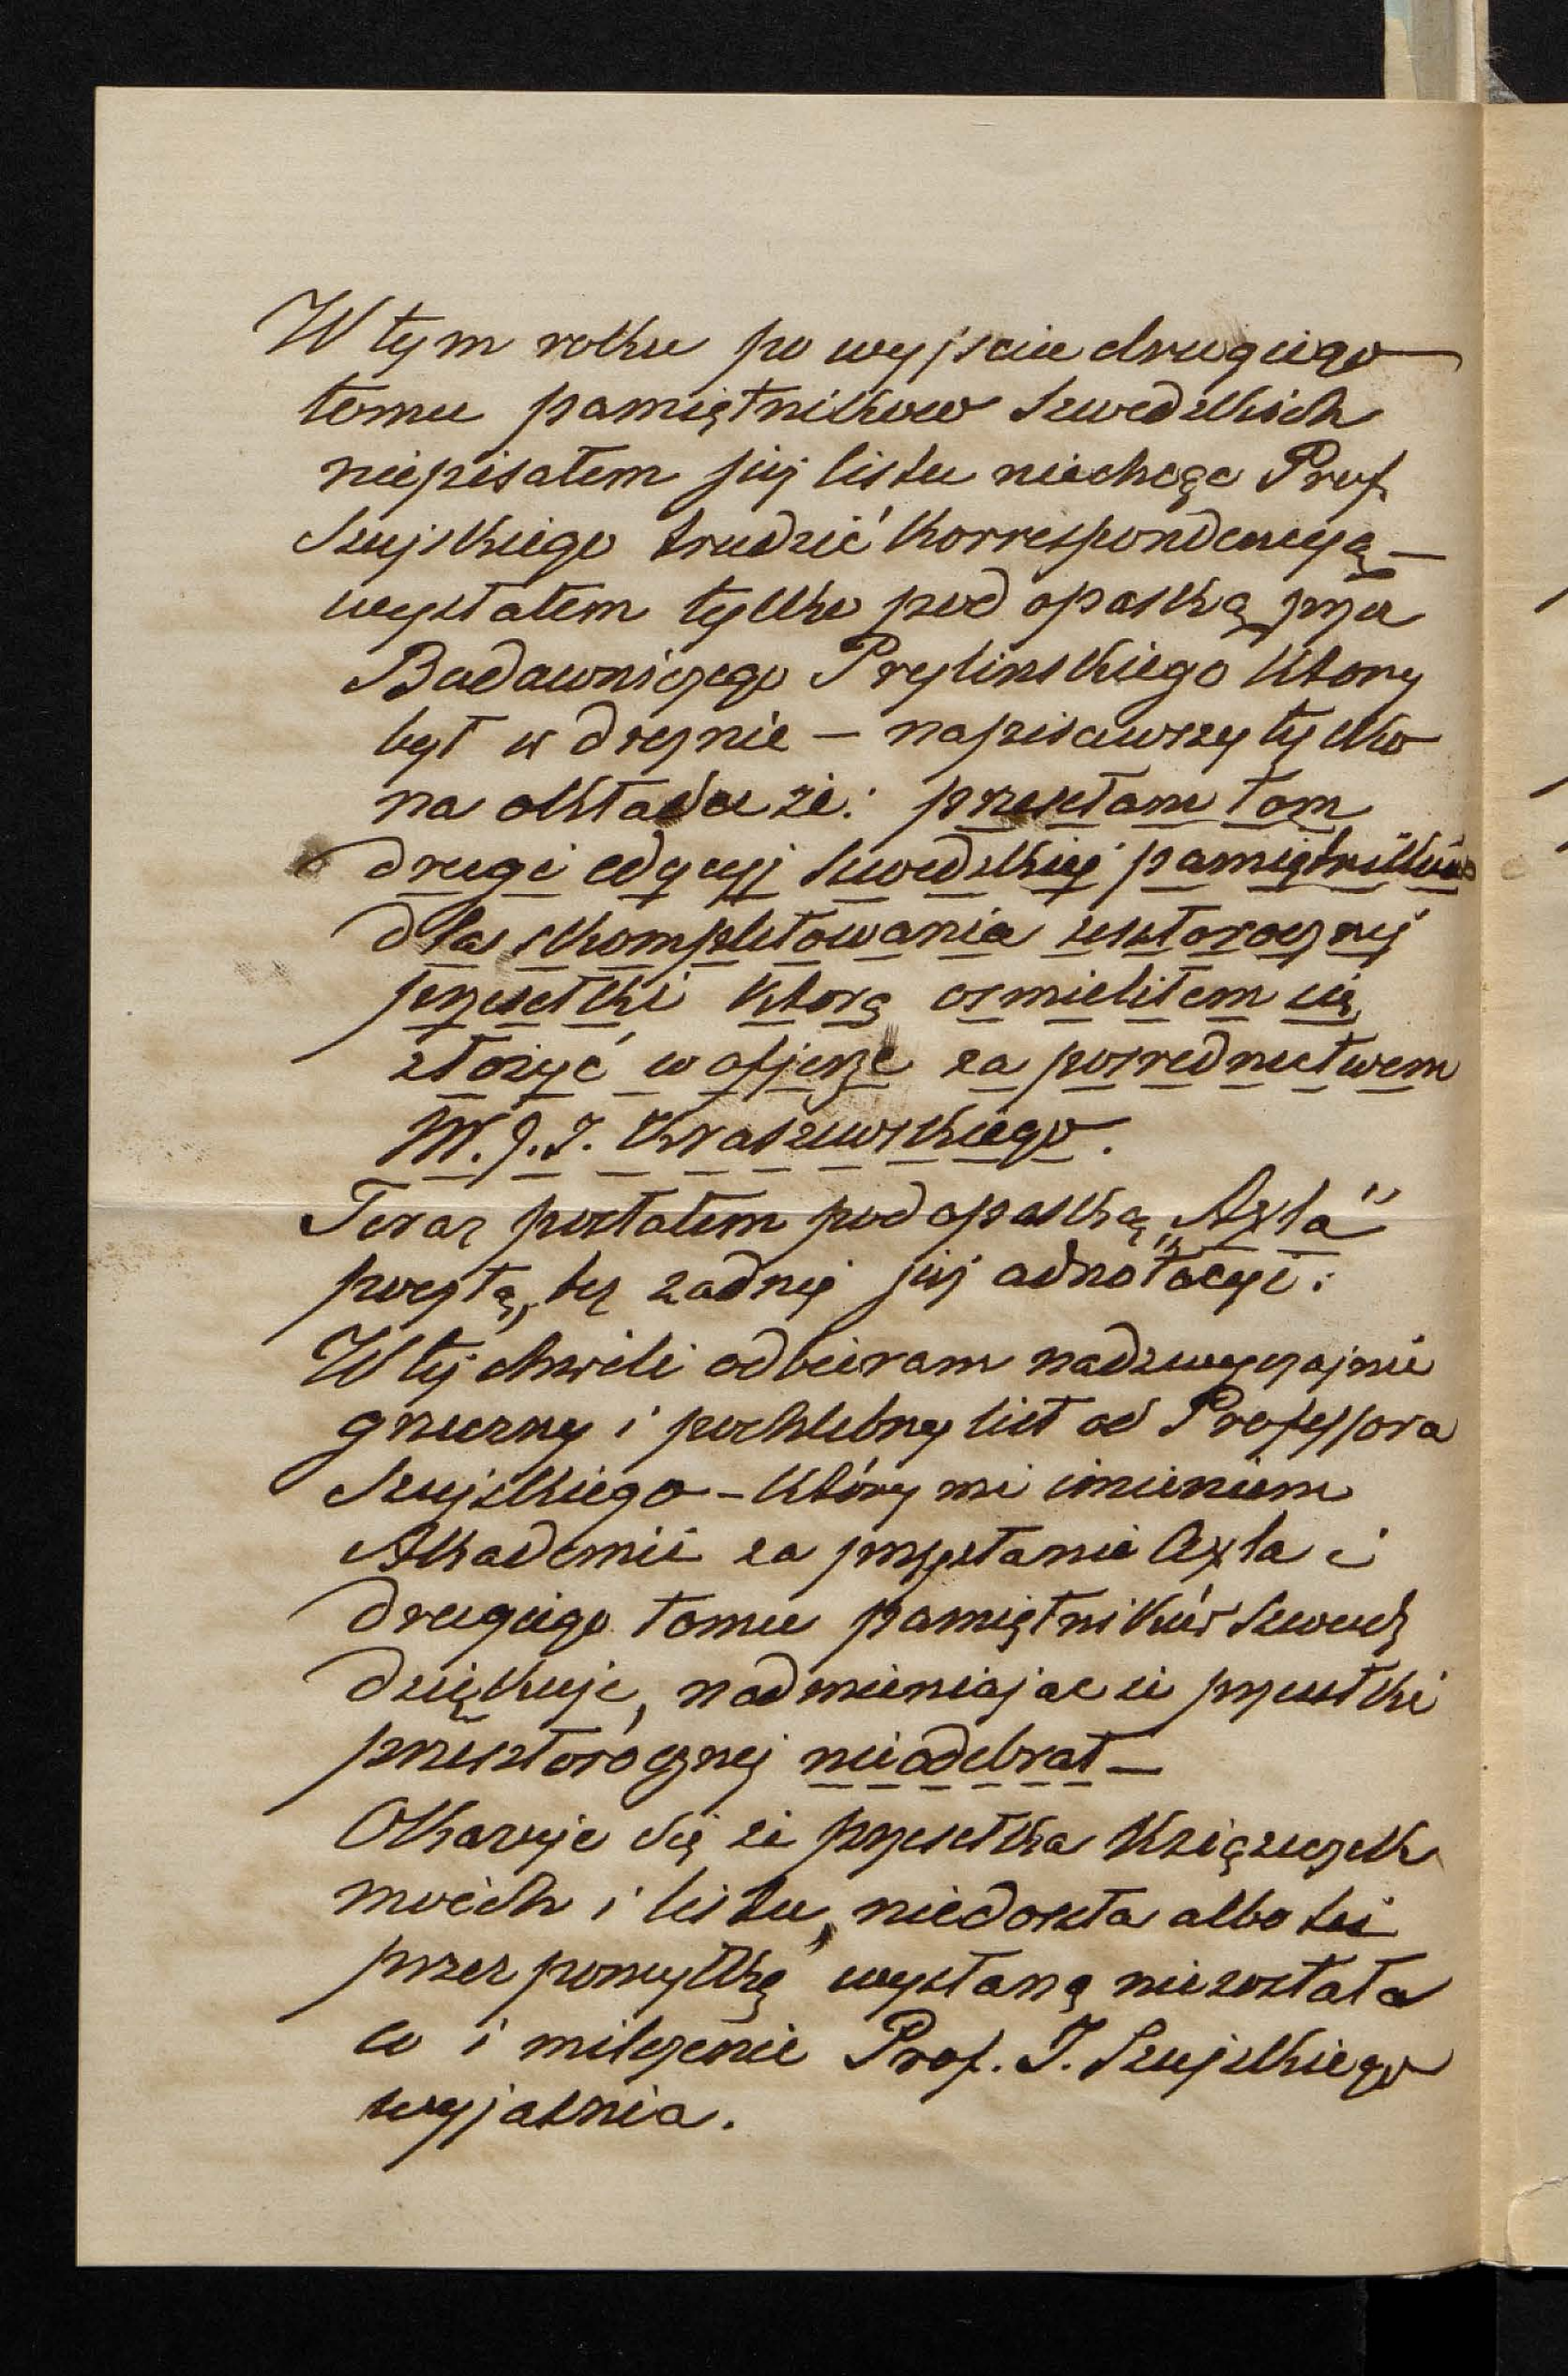 W tym roku po wyjsciu drugiego
tomu pamiętnikow Szwedzkich
niepisałem już listu niechcąc Prof.
Szujskiego trudzić korrespondencyą —
wysłałem tylko pod opaską przez
Budawniczego Prylinskiego ktory
był w dreznie — napisawszy tylko
na okładce że: przesełam tom
drugi edycyj szwedzkiej pamiętników
dla skompletowania zeszłorocznej
przesełki ktorą osmieliłem się
złożyć w ofierze za posrednictwem
W. J. I. Kraszewskiego.
Teraz posłałem pod opaską „Axla"
pocztą, bez żadnej już adnotacyi:
W tej chwili odbieram nadzwyczajnie
grzeczny i pochlebny list od Professora
Szujskiego – który mi imieniem
Akademii za przysłanie Axla i
drugiego tomu pamiętników Szwedz
dziękuje, nadmieniajac że przesełki
przeszłorocznej nieodebrał —
Okazuje się że przesełka książeczek
moich i listu, niedoszła albo też
przez pomyłkę wysłaną niezostała
co i milczenie Prof. J. Szujskiego
wyjasnia.